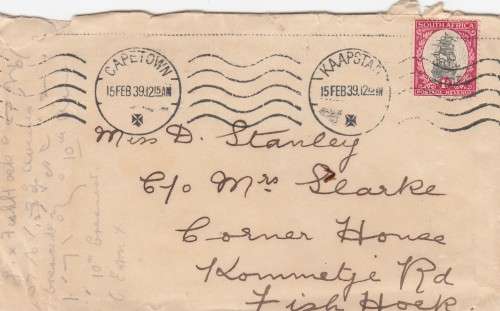 SOUTH AFRICA
POSTAGE REVENUE
CAPETOWN
15 FEB 39.12 15 AM
KAAPSTAD
15 FEB 39.12 15 AM
Miss D. Stanley
C/o Mrs Slarke
Corner House
Kommetje Rd
Fish Hoek.